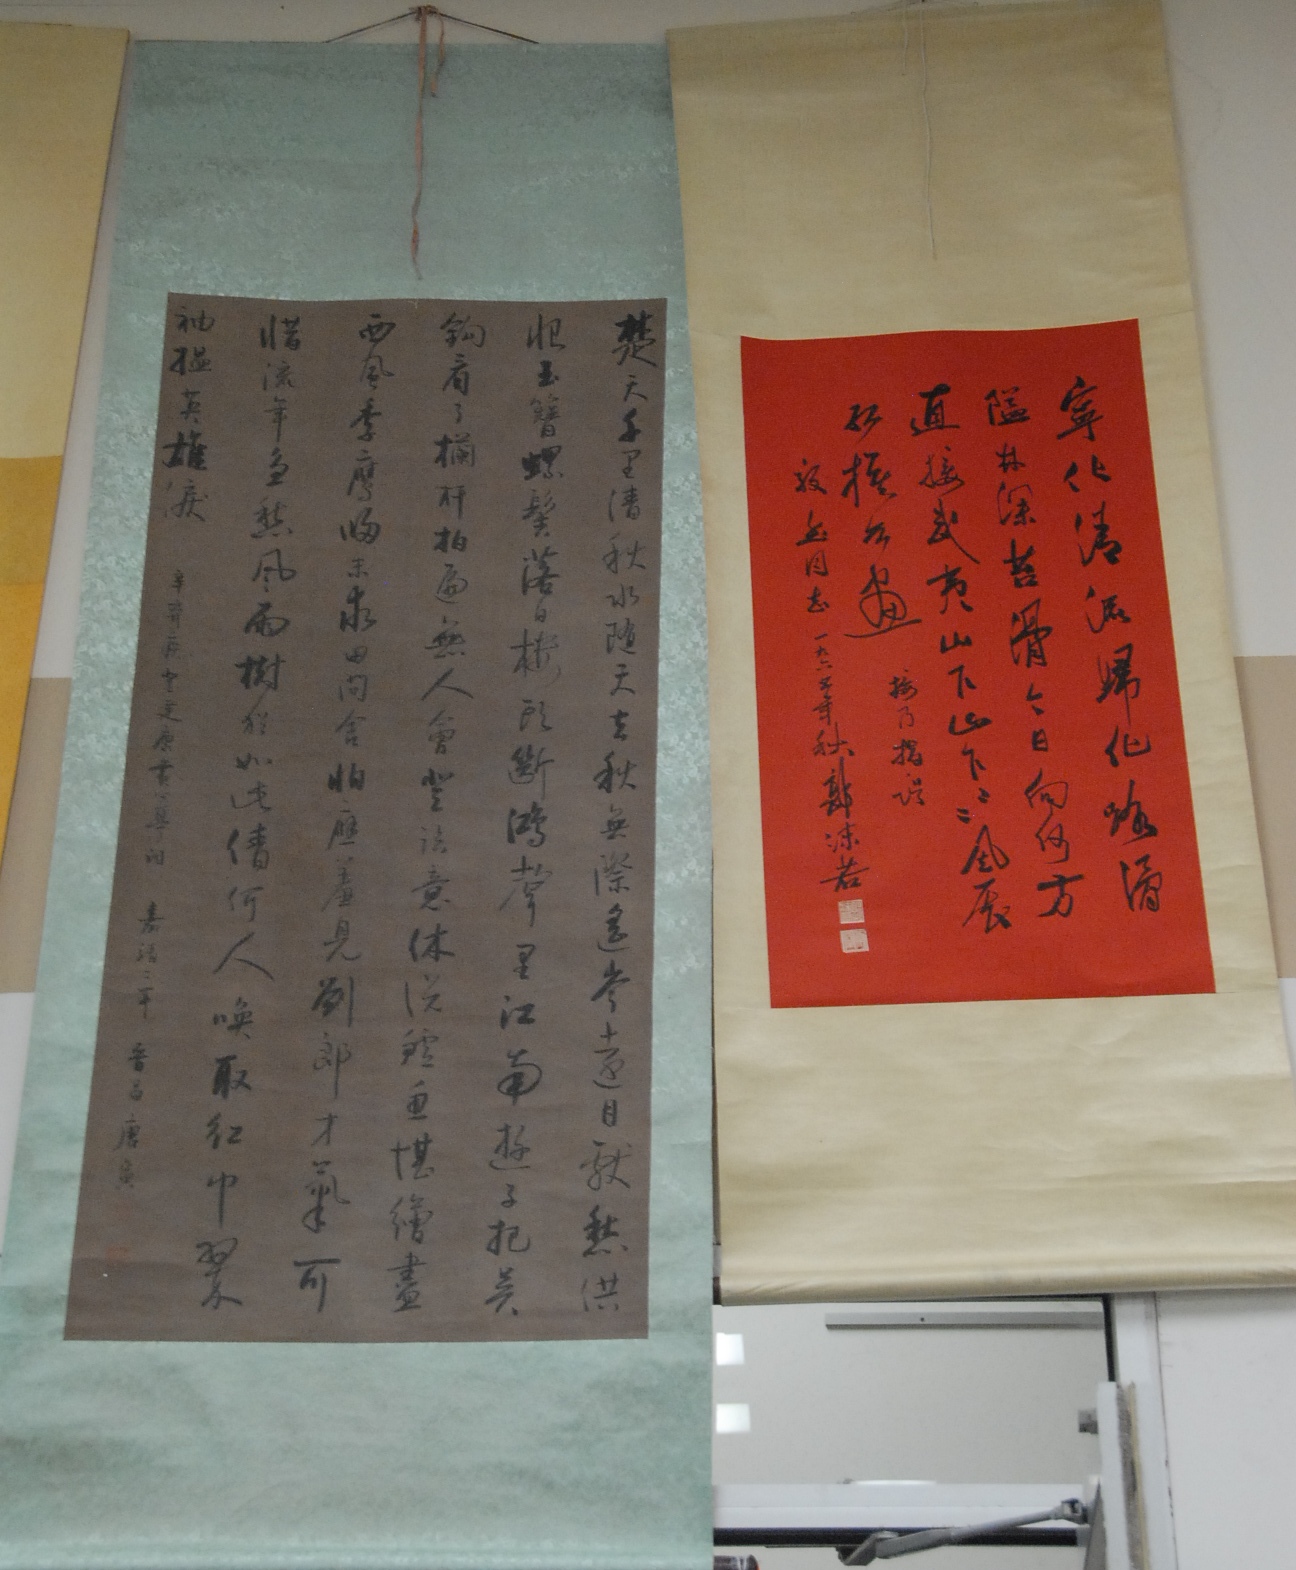 寧化清流歸化路滑
隘林深苔滑今日向何方
直接武夷山下山下〻〻風展
紅旗如畫 接乃指誤
同志 一九六五年秋 郭沫若
楚天千里清秋水隨天去秋無際遙岑遠目獻愁供
恨玉簪螺髻落日樓頭斷鴻聲里江南遊子把吳
鈎看了欄杆拍遍無人會登臨意休説鱸魚堪繪盡
西風季鷹歸未求田問舍怕應羞見劉郎才氣可
惜流年急愁風雨樹猶如此倩何人喚取紅巾翠
袖搵英雄淚
辛棄疾登建康 嘉靖二年 晉昌唐寅